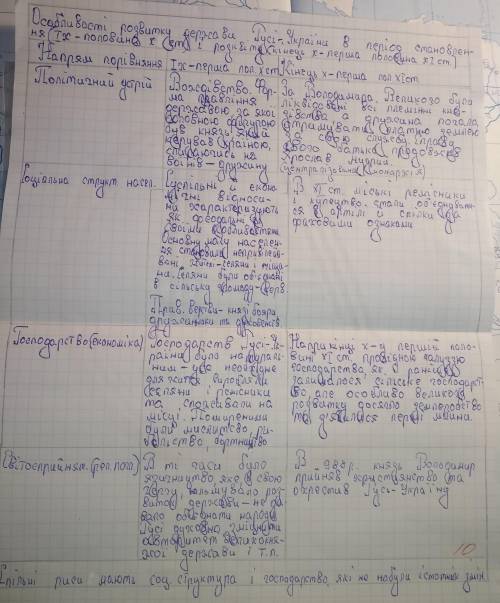 Особливості розвитку держави Русі-України в період становлен-
ня (IX-половина X ст.) і розквіту (кінець X-перша половина XI ст.)
Напрям порівняння
IX-перша пол. X ст.
Кінець X-перша пол XI ст.
Політичний устрій
Вождівство. Фор-
ма правління
державою, за якої
основною фігурою
був князь який
керував країною,
спираючись на
воїнів-дружину
За Володимира Великого були
ліквідовані всі племінні кня-
зівства а дружина почала
отримувати платню землею
за свою службу, справа
свого батька продовжив
Ярослав Мудрий.
Централізована монархія
Соціальна структ. насел.
Суспільні й еконо-
мічні відноси-
ни характеризують
як феодальні за
своїми особливостями
Основну масу населен-
ня становили
селяни і міща-
ни. Селяни були об'єднані
в сільську громаду-верв.
Прив. верстви-князі бояри
дружинники та духовенство
В XI ст. міські ремісники
і купецтво стали об'єднувати-
ся в артілі й спілки за
фаховими ознаками
Господарство (економіка)
Господарство Русі-Ук-
раїни було натураль-
ним-усе необхідне
для життя виробляли
селяни і ремісники
та споживали на
місці. Поширеними
були мисливство, ри-
бальство, бортництво
Наприкінці X-у першій поло-
вині XI ст. провідною галуззю
господарства, як і раніше
залишалося сільське господарст-
во, але особливо великого
розвитку досягло землеробство
та з'явилися перші млина.
Світосприйнят. (рел. погл.)
В ті часи було
язичництво яке в свою
чергу, гальмувало роз-
виток держави-не да-
вало об'єднати народи
Русі духовно, зміцнити
авторитет великокня-
жої держави і т.п.
В 988р. князь Володимир
прийняв християнство та
охрестив Русь-Україну
10
Спільні риси мають соц. структура і господарство, які не набули істотних змін